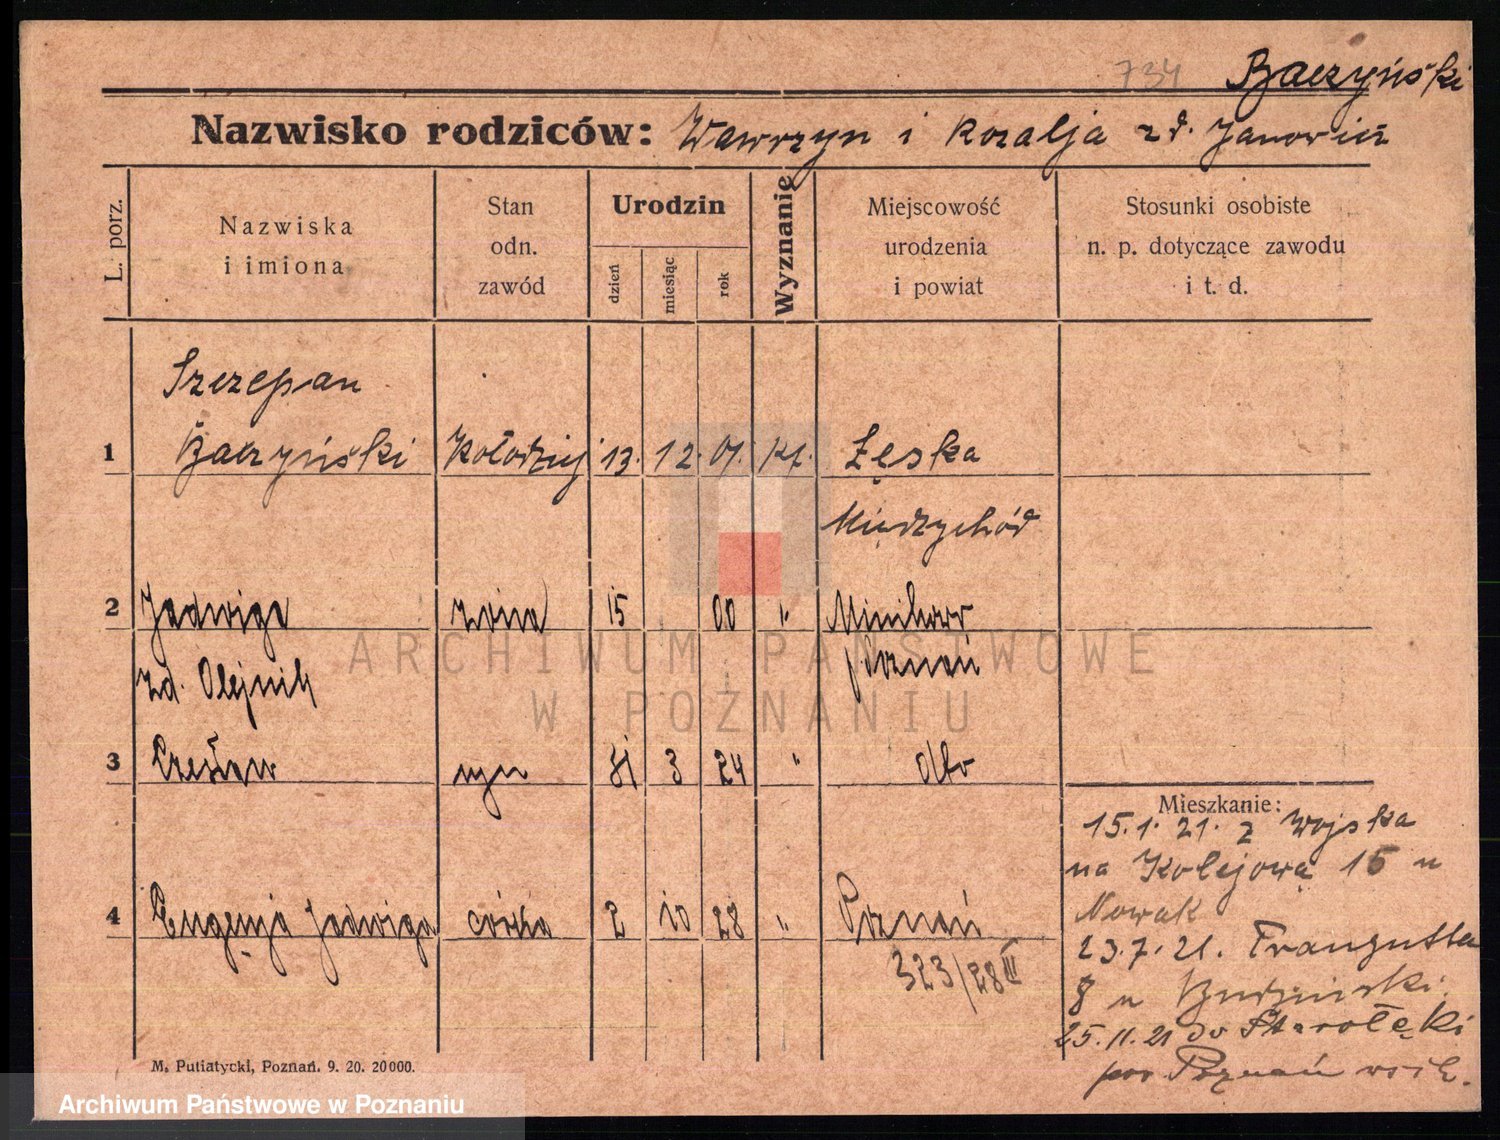 734 Baczyński
Nazwisko rodziców: Wawrzyn i Rozalja zd. Janowicz
L. porz.
Nazwiska
i imiona
Stan
odn.
zawód
Urodzin
dzień
miesiąc
rok
Wyznanie
Miejscowość
urodzenia
i powiat
Stosunki osobiste
n. p. dotyczące zawodu
i t. d.
Szczepan
1 Baczyński Kołodziej 13. 12. 01. kt.
Międzychód
2 Jadwiga żona 15 00 " Minikowo
Poznań
zd. Olejnik
3 Czesław syn 31 3 24 "
4 Eugenja Jadwiga córka 2 10 28 " Poznań
323/28 III
Mieszkanie:
15.1.21. z Wojska
na Kolejową 15 u
Nowak
23.7.21. Traugutta
8 u
25.11.21 do Starołęki
pow Poznań wsch.
M. Putiatycki, Poznań. 9. 20. 20000.
ARCHIWUM PAŃSTWOWE
W POZNANIU
Archiwum Państwowe w Poznaniu